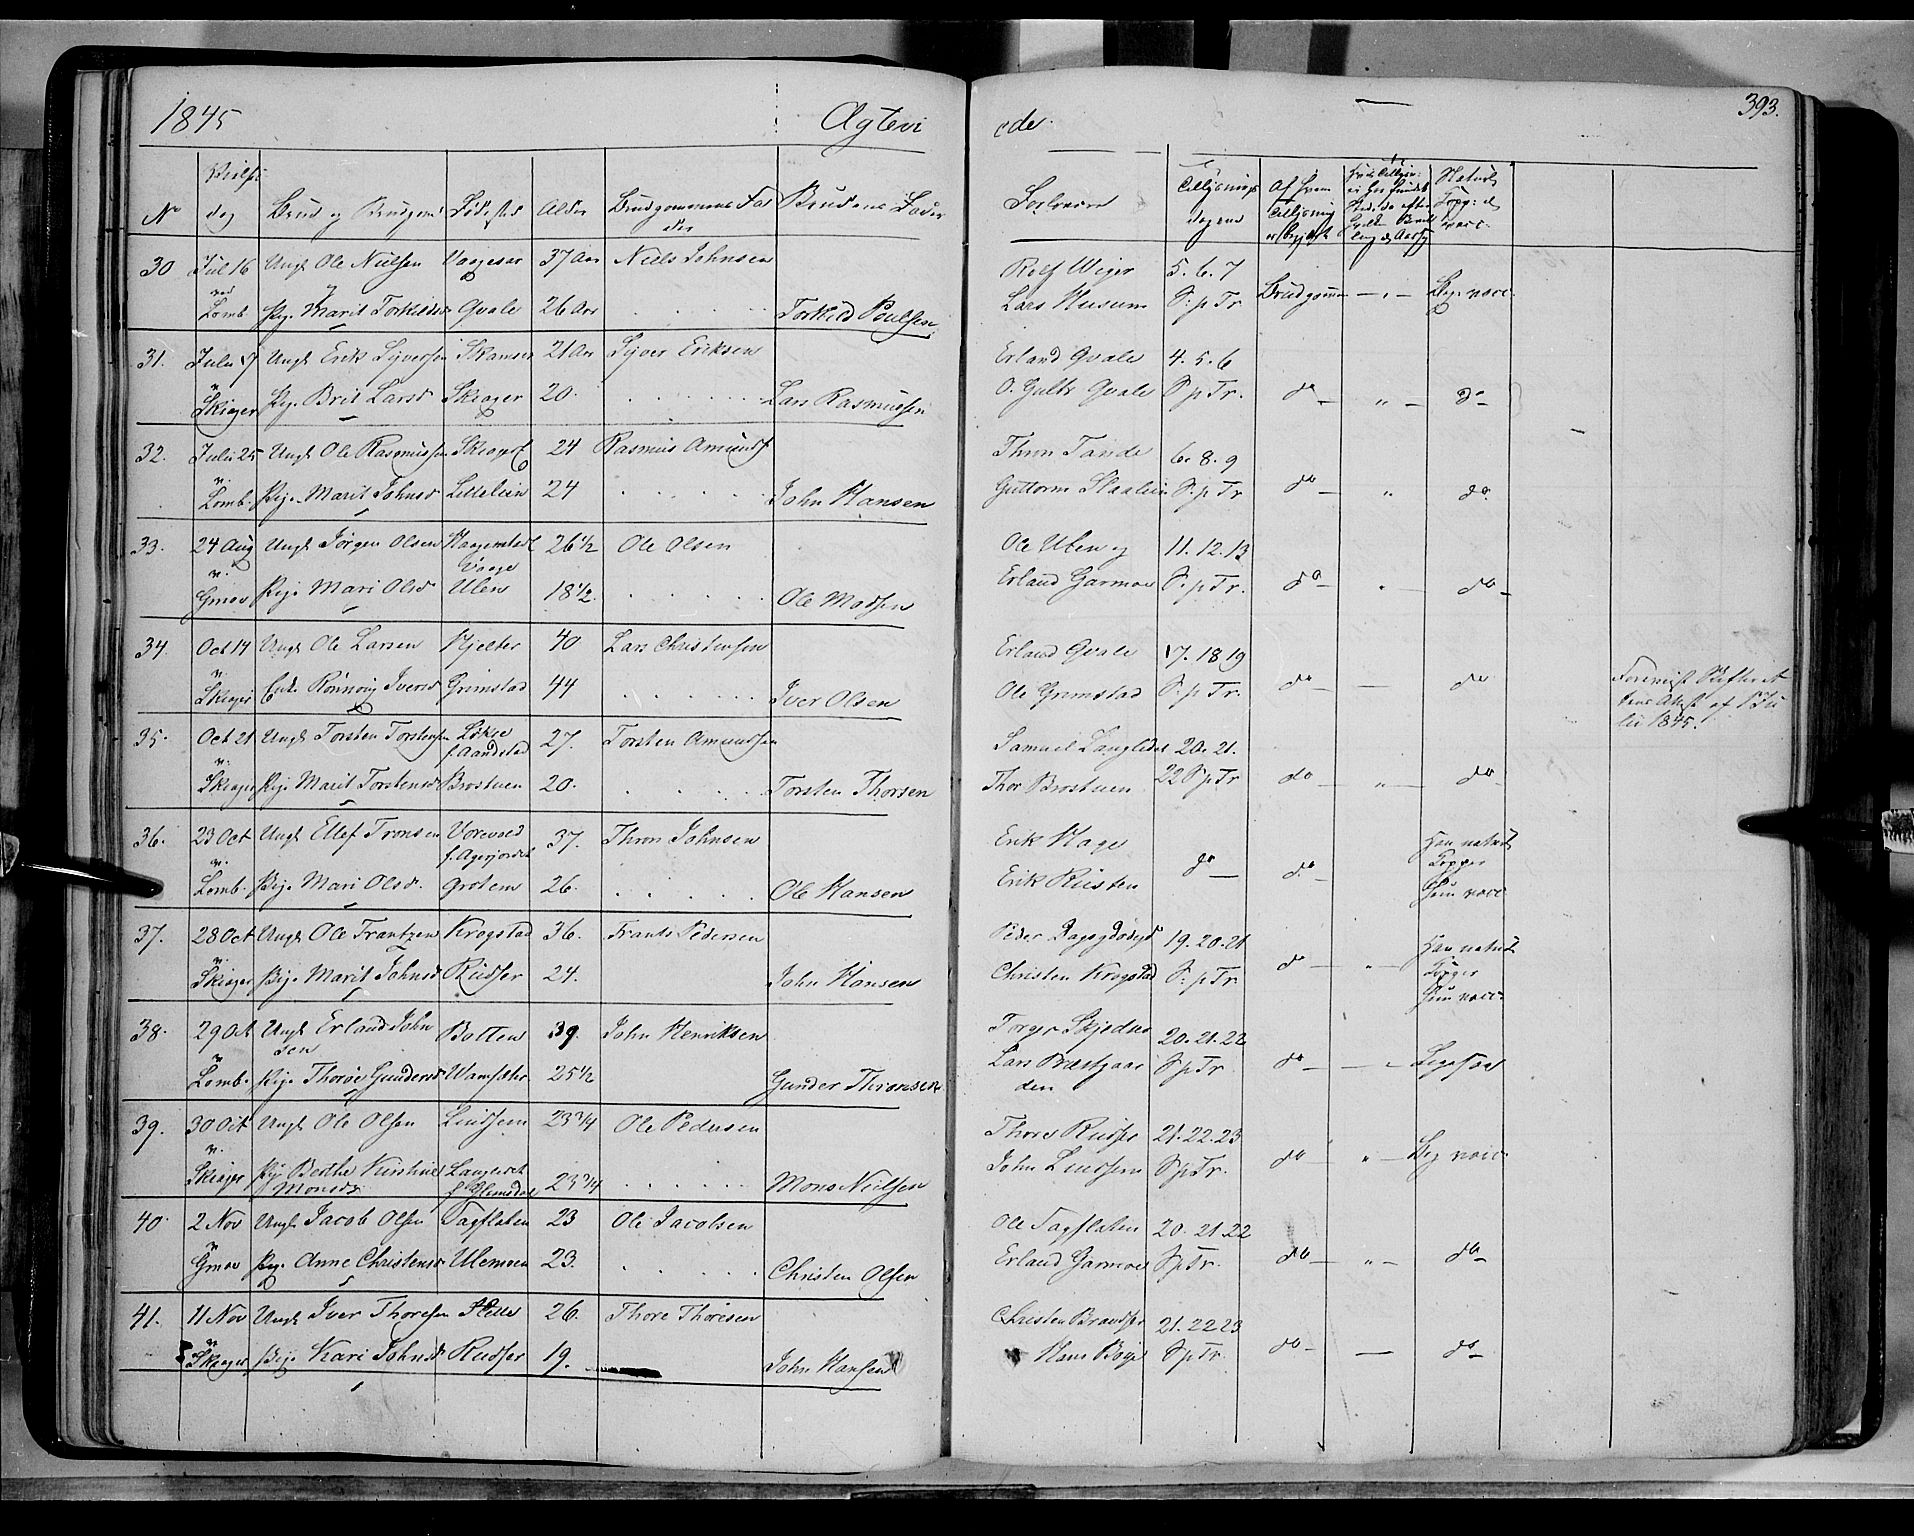 1845 Ægtevi ede. 393.
No Vielses dag Brud og Brudgom Fødested Alder Brudgommens Fader Brudens Fader Forlovere Tillysnings dagene Af hvem Tillysning er begjært Naturl: Kopp: el vacc:
30 Jul 16 Ungk Ole Nielsen 37 Aar Niels Johnsen Rolf Wiger 5. 6. 7
ved Lomb. Pig. Marit Torkildsd Qvale 26 Aar Torkild Poulsen Lars Husum S: p Tr. Brudgommen Beg. vacc.
31. Juli 17 Ungk Erik Syversen Skansen 21 Aar Syver Eriksen Erland Qvale 4. 5. 6
v. Skiager Pig. Brit Larsd Skiager 20. Lars Rasmussen O. Gulbr Qvale S p Tr. do do
32. Juli 25 Ungk Ole Rasmussen 24 Rasmus Amundsen Thron Tande 6. 8. 9
v. Lomb. Pig. Marit Johnsd Lillelien 24 John Hansen Guttorm Staalien S: p Tr do do
33. 24 Aug Ungk Jørgen Olsen 26 1/2 Ole Olsen Ole Ulen og 11. 12. 13
v. Gmoe Pig. Mari Olsd Ulen 18 1/2. Ole Madsen Erland Garmoe S. p Tr. do do
34. Oct 14 Ungk Ole Larsen Hjelter 40 Lars Christensen Erland Qvale 17. 18 19
v. Skiager Enk. Rønnoug Iversd Grimstad 44 Iver Olsen Ole Grimstad S: p Tr. do do
1845.
35. Oct 21 Ungk Torsten Torstensen Løkre f. Aandstad 27. Torsten Amundsen Samuel 20. 21.
v. Skiager Pig. Marit Torstensd Brostuen 20. Torsten Thorsen Thor Brostuen 22 S p Tr do do
36. 23 Oct Ungk Ellef Tronsen 37. Thron Johnsen Erik Hage Han naturl Kopper
v. Lomb. Pig. Mari Olsd. Grotem 26. Ole Hansen Erik Rusten do do Hun vacc
37. 28 Oct Ungk Ole Frantzen Krogstad 36. Frants Pedersen Peder 19. 20. 21 Han naturl Kopper
v. Skiager Pig. Marit Johnsd Rudser 24. John Hansen Christen Krogstad S: p Tr. do Hun vacc
38. 29 Oct Ungk Erland Johnsen Botten 39. John Henriksen Torger Skjedsar 20. 21. 22
v. Lomb. Pig. Thorøe Gundersd 25 1/2 Gunder Thronsen Lars Præstgaarden S p Tr. do
39. 30 Oct Ungk Ole Olsen Lindsem 23 3/4 Ole Pedersen Thore Rudser 21. 22. 23
v. Skiager Pig Berthe Kirstine Monsdr 23 3/4 Mons Nielsen John Lindsem S p Tr. do Beg vacc
40. 2 Nov Ungk Jacob Olsen Fagflaten 23 Ole Jacobsen Ole Fagflaten 20. 21. 22
v Gmoe Pig. Anne Christensd Ulemoen 23. Christen Olsen Erland Garmoe S p Tr. do do
41. 11 Nov Ungk Iver Thoresen 26. Thore Thoresen Christen 21. 22 23
v Skiager Pig. Kari Johnsd Rudser 19. John Hansen Hans S p Tr. do do